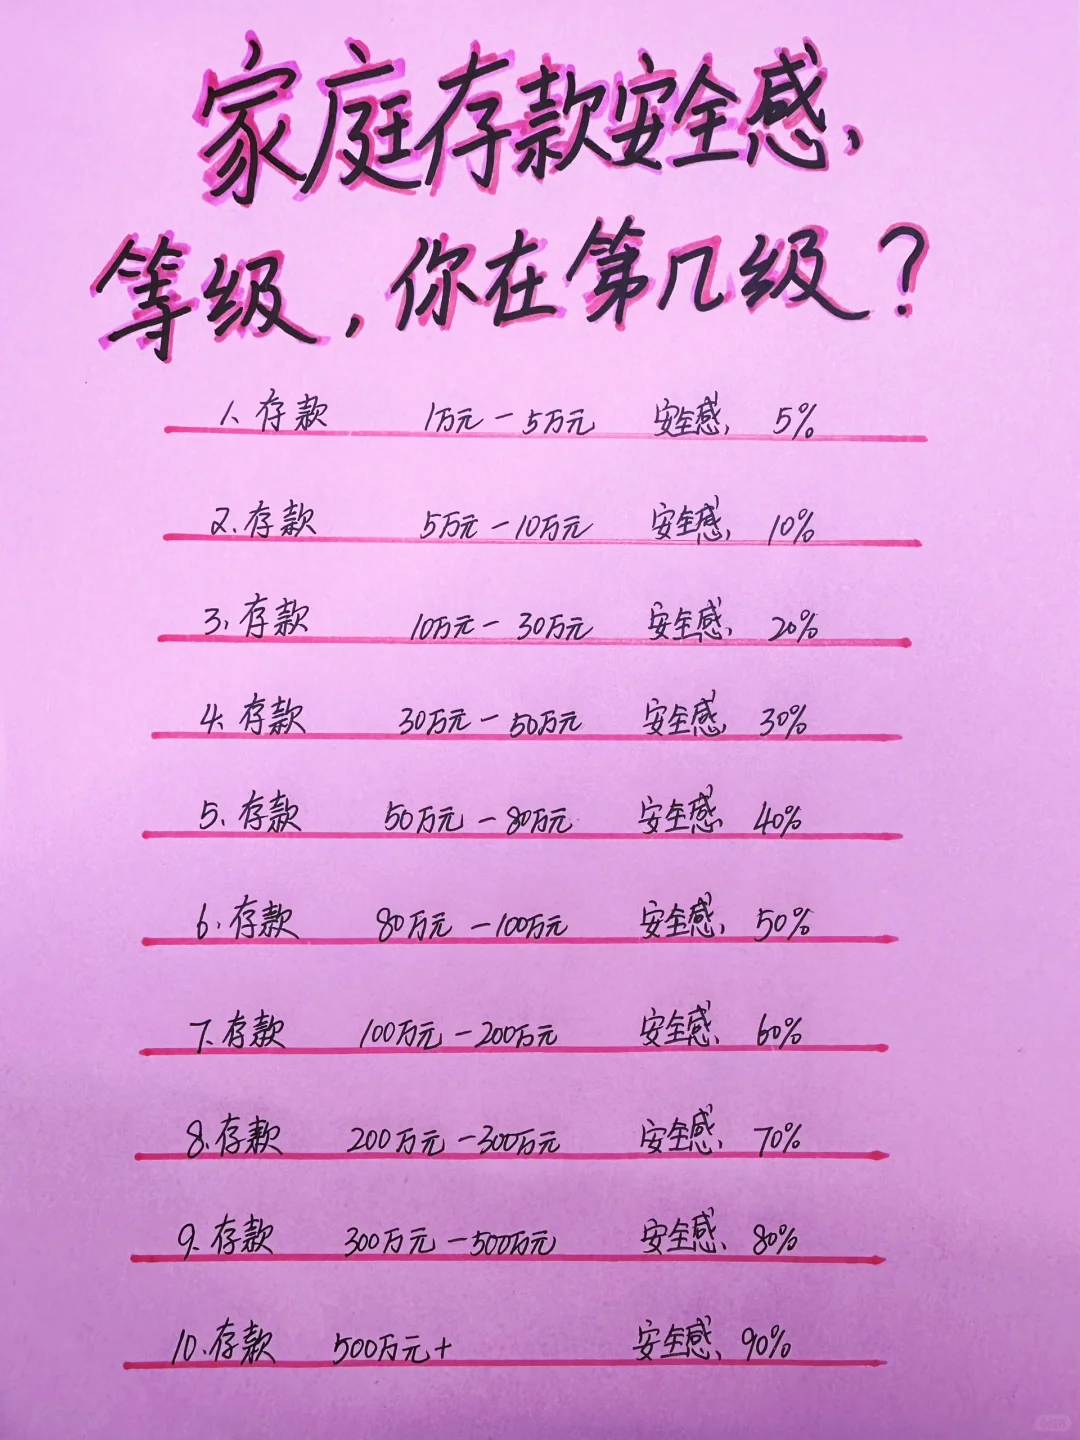 家庭存款安全感、
等级，你在第几级？
1、存款 1万元－5万元 安全感、5%
2、存款 5万元－10万元 安全感、10%
3、存款 10万元－30万元 安全感、20%
4、存款 30万元－50万元 安全感、30%
5、存款 50万元－80万元 安全感、40%
6、存款 80万元－100万元 安全感、50%
7、存款 100万元－200万元 安全感、60%
8、存款 200万元－300万元 安全感、70%
9、存款 300万元－500万元 安全感、80%
10、存款 500万元+ 安全感、90%